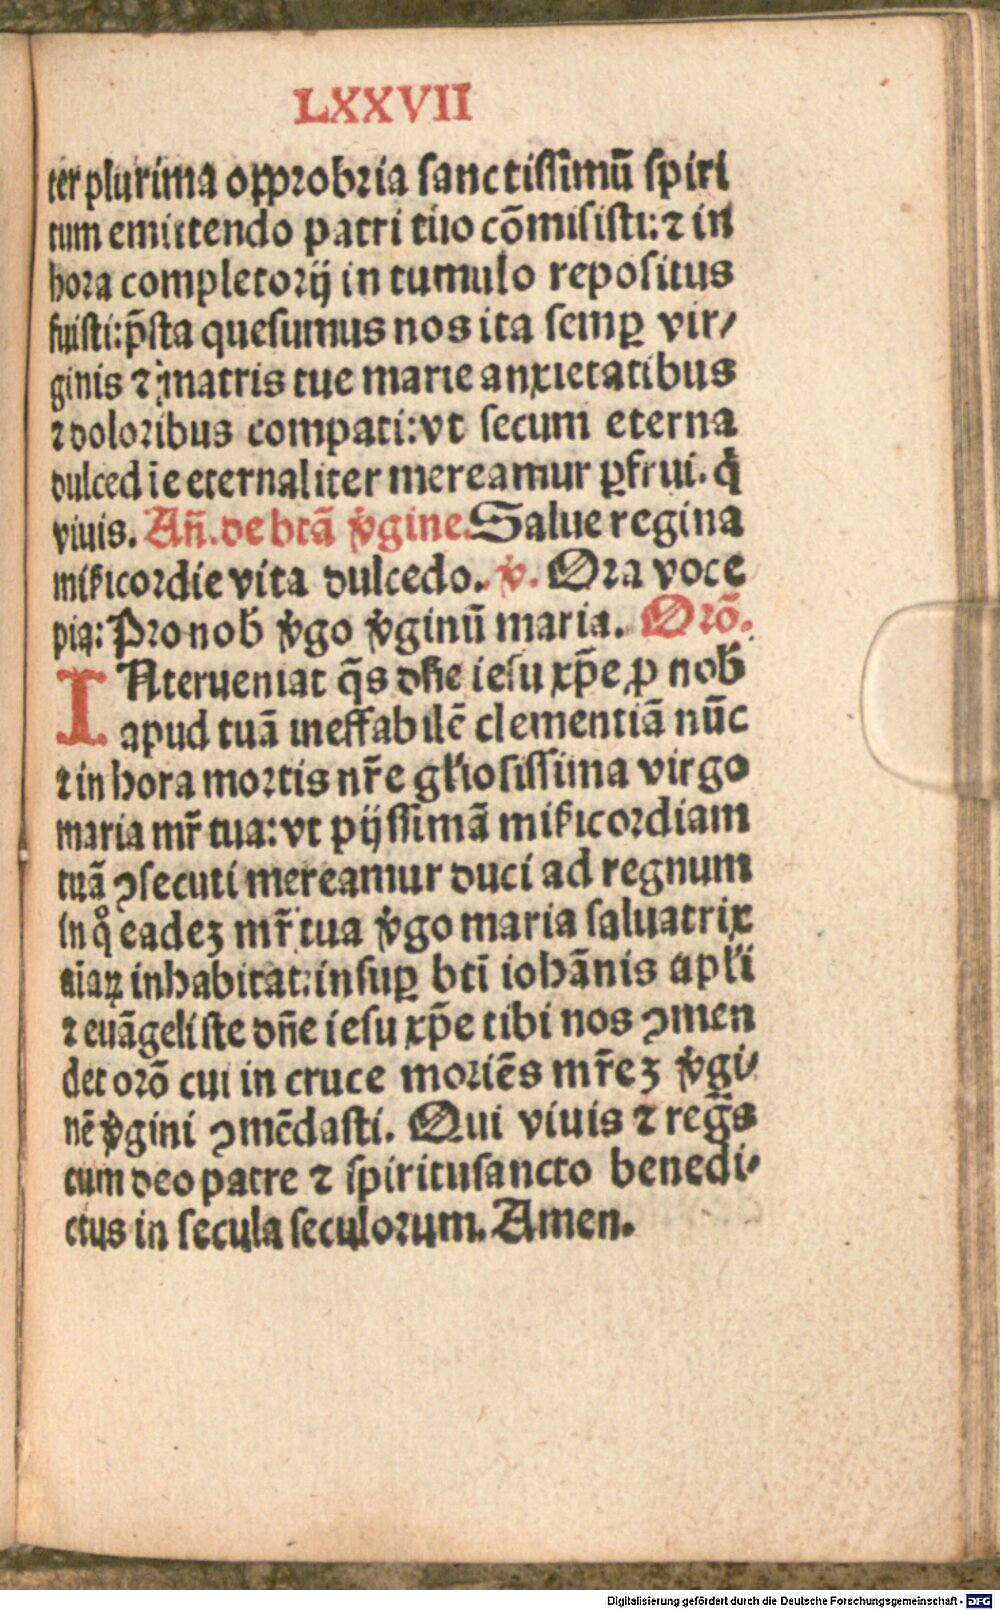 LXXVII
ter plurima opprobria sanctissimū spiri
tum emittendo patri tuo cōmisisti: ⁊ in
hora completorij in tumulo repositus
fuisti: p̄sta quesumus nos ita semꝑ vir⸗
ginis ⁊ matris tue marie anxietatibus
⁊ doloribus compati: vt secum eterna
dulcedīe eternaliter mereamur ꝑfrui. q̇
viuis. Añ. de btā v̇gine. Salue regina
mīicordie vita dulcedo. v̇. Ora voce
pia: Pro nob̄ v̇go v̇ginū maria. Orō.
INterueniat q̄s dn̄e iesu xp̄e ꝓ nob̄
apud tuā ineffabilē clementiā nūc
⁊ in hora mortis nr̄e gl̄iosissima virgo
maria mr̄ tua: vt pijssimā mīicordiam
tuā ꝯsecuti mereamur duci ad regnum
in qͦ eadeꝫ mr̄ tua v̇go maria saluatrix
aīaꝝ inhabitat: insuꝑ btī iohānis apl̄i
⁊ euāgeliste dn̄e iesu xp̄e tibi nos ꝯmen
det orō cui in cruce moriēs mr̄eꝫ v̇gi⸗
nē v̇gini ꝯmēdasti. Qui viuis ⁊ reḡs
cum deo patre ⁊ spiritusancto benedi⸗
ctus in secula seculorum. Amen.
Digitalisierung gefördert durch die Deutsche Forschungsgemeinschaft - DFG